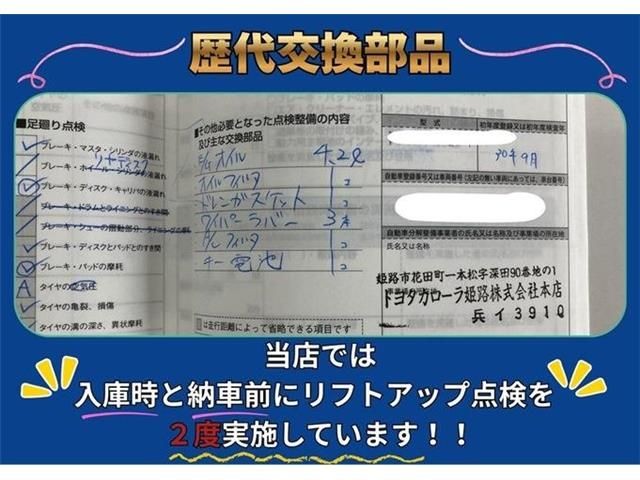 歴代交換部品
■足廻り点検
ブレーキ・マスタ・シリンダの液漏れ
リヤディスク
ブレーキ・ホイール・シリンダの液漏れ
ブレーキ・ディスク・キャリパの液漏れ
ブレーキ・ドラムとライニングとのすき間
ブレーキ・シューの摺動部分、ライニングの摩耗
ブレーキ・ディスクとパッドとのすき間
ブレーキ・パッドの摩耗
A タイヤの空気圧
タイヤの亀裂、損傷
タイヤの溝の深さ、異状摩耗
■その他必要となった点検整備の内容
及び主な交換部品
E/Gオイル 4.2ℓ
オイルフィルタ 1コ
ドレンガスケット 1コ
ワイパーラバー 3本
A/Cフィルタ 1コ
キー電池 1コ
は走行距離によって省略できる項目です
型式
初年度登録又は初年度検査年
30年9月
自動車登録番号又は車両番号（左記の無い車両にあっては、車台番号）
自動車分解整備事業者の氏名又は名称及び事業場の所在地
氏名又は名称
姫路市花田町一本松字深田90番地の1
トヨタカローラ姫路株式会社本店
兵イ3910
当店では
入庫時と納車前にリフトアップ点検を
２度実施しています！！